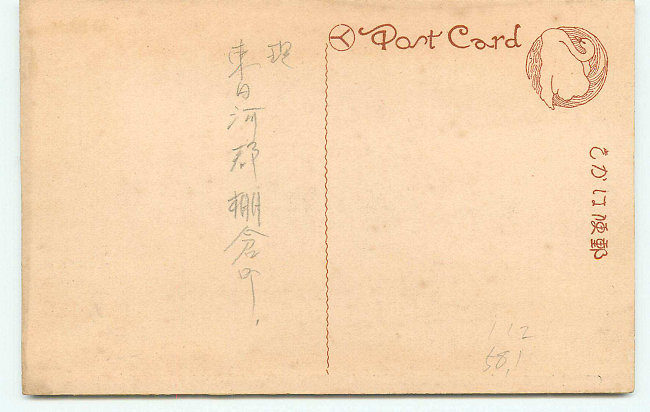 Post Card
きかは便郵
現
東白河郡棚倉町
112
58.1